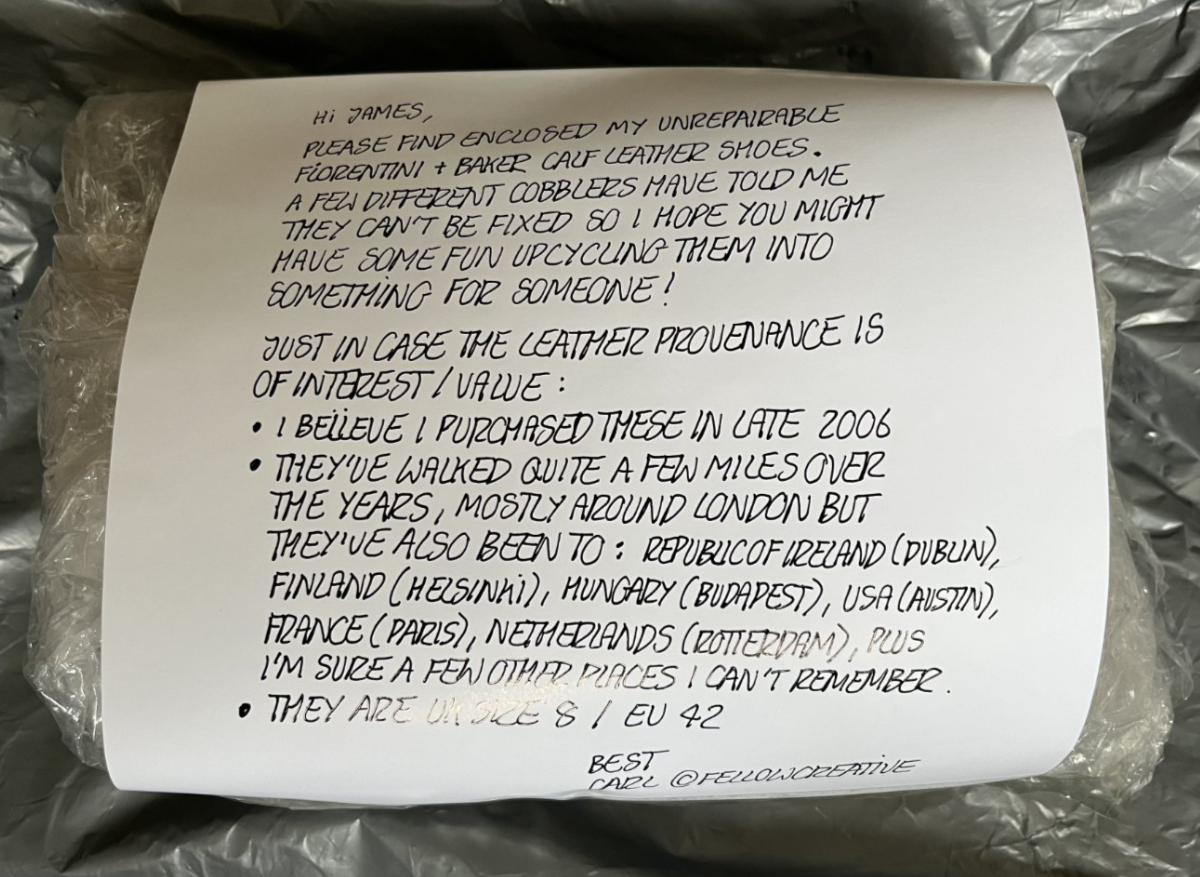 Hi JAMES,
PLEASE FIND ENCLOSED MY UNREPAIRABLE
FIORENTINI + BAKER CALF LEATHER SHOES.
A FEW DIFFERENT COBBLERS HAVE TOLD ME
THEY CAN'T BE FIXED SO I HOPE YOU MIGHT
HAVE SOME FUN UPCYCLING THEM INTO
SOMETHING FOR SOMEONE!
JUST IN CASE THE LEATHER PROVENANCE IS
OF INTEREST / VALUE:
• I BELIEVE I PURCHASED THESE IN LATE 2006
• THEY'VE WALKED QUITE A FEW MILES OVER
THE YEARS, MOSTLY AROUND LONDON BUT
THEY'VE ALSO BEEN TO: REPUBLIC OF IRELAND (DUBLIN),
FINLAND (HELSINKI), HUNGARY (BUDAPEST), USA (AUSTIN),
FRANCE (PARIS), NETHERLANDS (ROTTERDAM), PLUS
I'M SURE A FEW OTHER PLACES I CAN'T REMEMBER.
• THEY ARE UK SIZE 8 / EU 42
BEST
CARL @FELLOWCREATIVE